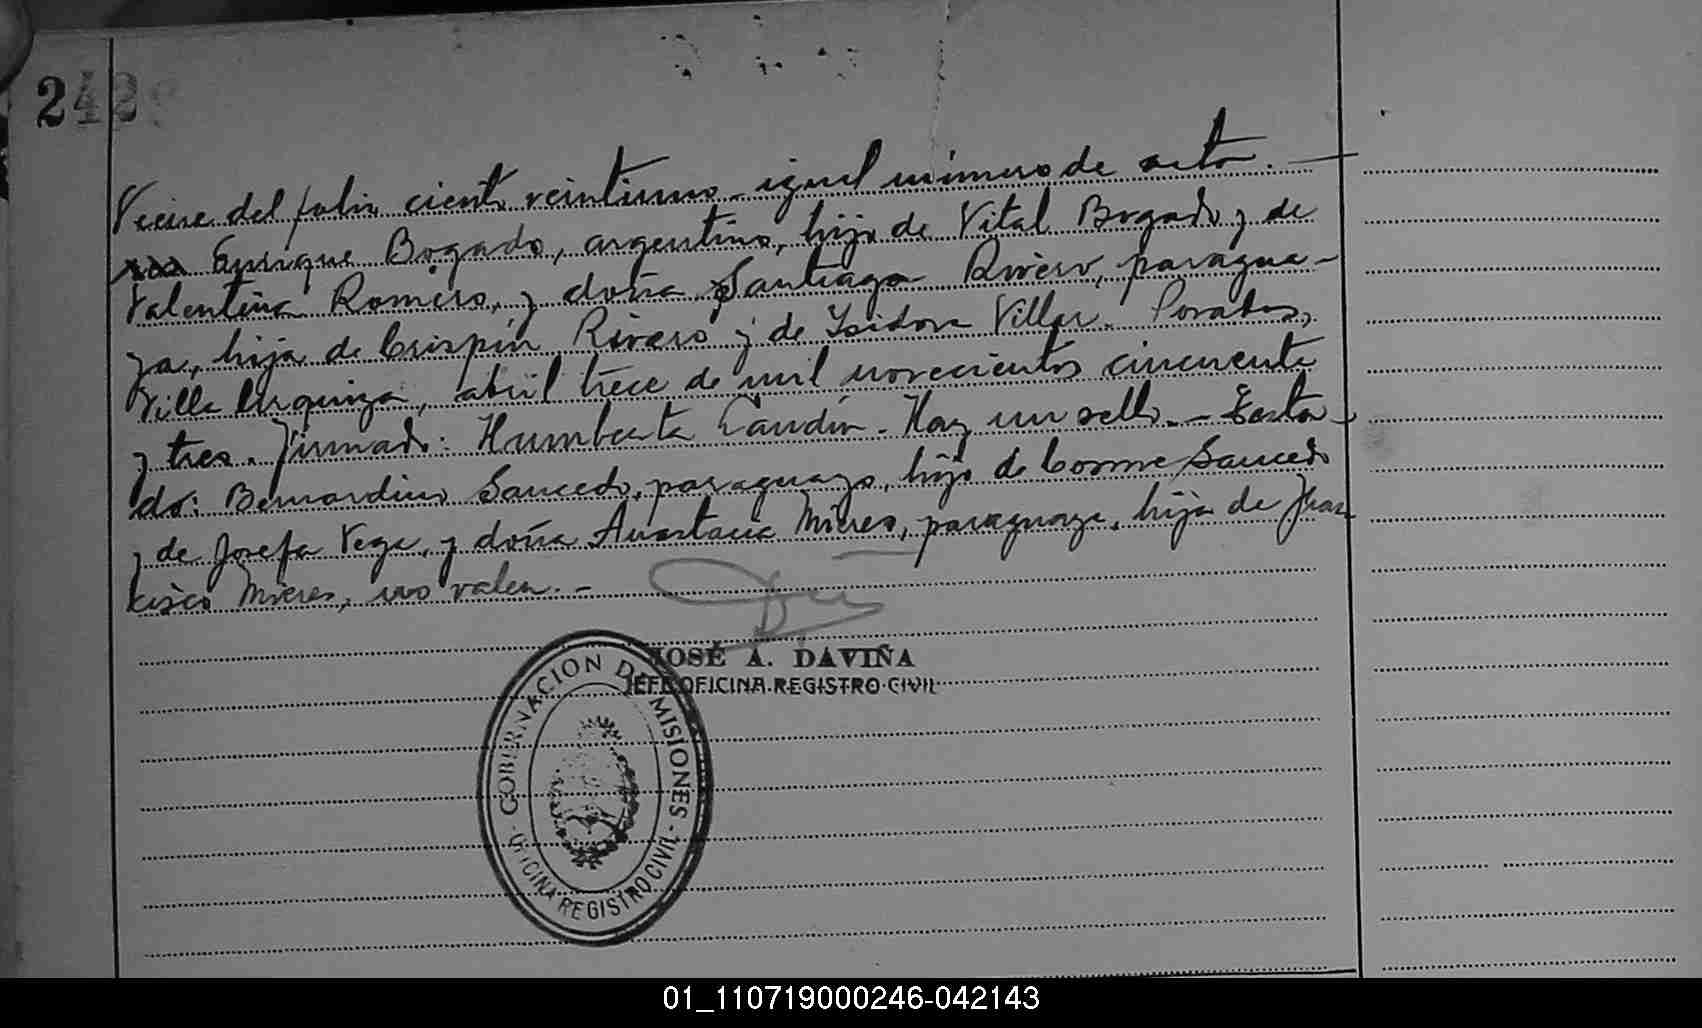 242
Viene del folio ciento veintiuno - igual número de acta. -
Enrique Bogado, argentino, hijo de Vital Bogado y de
Valentina Romero, y doña Santiaga Rivero, paragua-
ya, hija de Crispín Rivero y de Isidora Villar. Posadas,
Villa Urquiza, abril trece de mil novecientos cincuenta
y tres. Firmado: Humberto Gaudín. Hay un sello. - Testa-
do: Bernardino Saucedo, paraguayo, hijo de Cosme Saucedo
y de Josefa Vega, y doña Anastacia Mieres, paraguaya, hija de Fran
cisco Mieres, no valen. -
JOSÉ A. DAVIÑA
JEFE OFICINA REGISTRO CIVIL
GOBERNACION DE MISIONES
OFICINA REGISTRO CIVIL
01_110719000246-042143